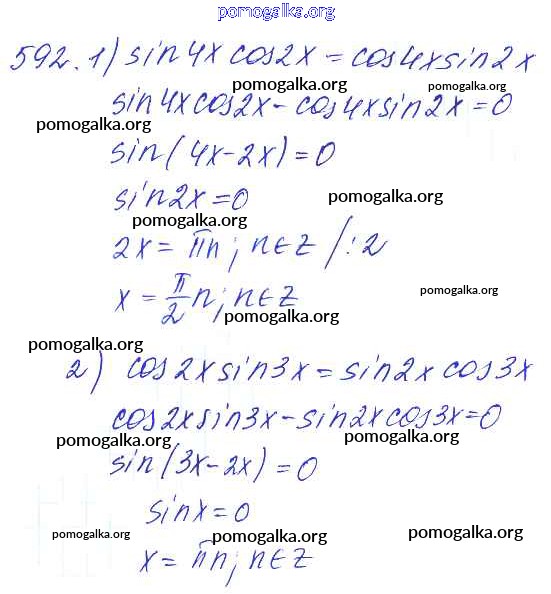 pomogalka.org
592. 1) sin4x cos2x = cos4x sin2x
pomogalka.org pomogalka.org
sin4x cos2x - cos4x sin2x = 0
pomogalka.org
sin(4x-2x) = 0
sin2x = 0
pomogalka.org
pomogalka.org
2x = πn; n∈Z /:2
x = π/2 n; n∈Z
pomogalka.org
pomogalka.org
pomogalka.org
2) cos2x sin3x = sin2x cos3x
cos2x sin3x - sin2x cos3x = 0
pomogalka.org pomogalka.org
sin(3x-2x) = 0
sinx = 0
pomogalka.org pomogalka.org pomogalka.org
x = πn; n∈Z